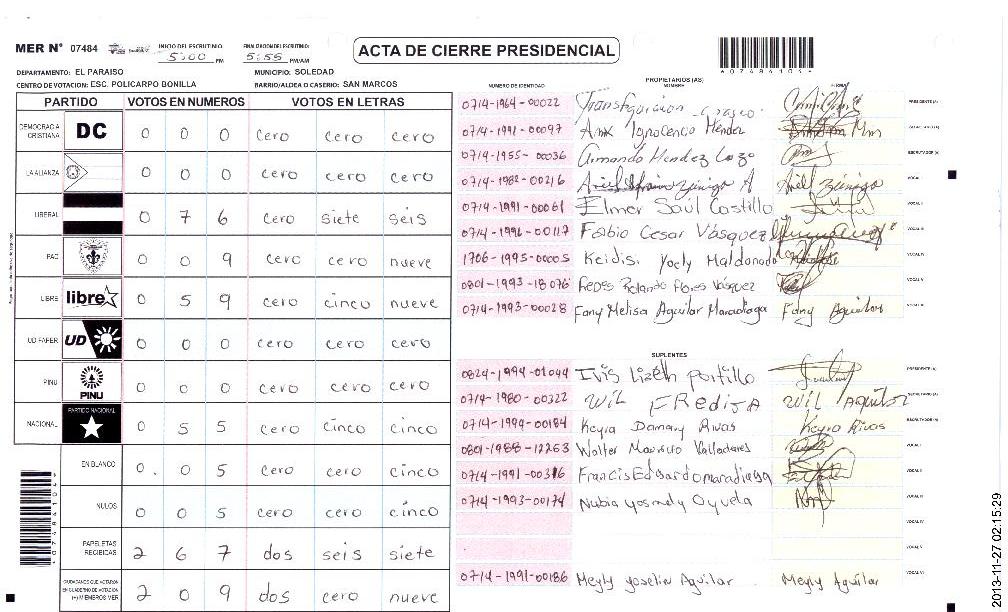 MER N° 07484 INICIO DEL ESCRUTINIO 5:00 PM FINALIZACION DEL ESCRUTINIO: 5:55 PM/AM
ACTA DE CIERRE PRESIDENCIAL
DEPARTAMENTO: EL PARAISO MUNICIPIO: SOLEDAD
CENTRO DE VOTACION: ESC. POLICARPO BONILLA BARRIO/ALDEA O CASERIO: SAN MARCOS
PARTIDO VOTOS EN NUMEROS VOTOS EN LETRAS
DEMOCRACIA CRISTIANA DC 0 0 0 cero cero cero
LA ALIANZA 0 0 0 cero cero cero
LIBERAL 0 7 6 cero siete seis
PAC 0 0 9 cero cero nueve
LIBRE libre 0 5 9 cero cinco nueve
UD FAPER UD 0 0 0 cero cero cero
PINU PINU 0 0 0 cero cero cero
NACIONAL PARTIDO NACIONAL 0 5 5 cero cinco cinco
EN BLANCO 0 0 5 cero cero cinco
NULOS 0 0 5 cero cero cinco
PAPELETAS RECIBIDAS 2 6 7 dos seis siete
CIUDADANOS QUE VOTARON EN CUADERNO DE VOTACION (+) MIEMBROS MER 2 0 9 dos cero nueve
PROPIETARIOS (AS)
NUMERO DE IDENTIDAD NOMBRE FIRMA
0714-1964-00022 PRESIDENTE (A)
0714-1991-00097 Ignocencio Méndez SECRETARIO (A)
0714-1955-00036 Armando Mendez Lazo ESCRUTADOR (A)
0714-1982-00216 Zúniga A Ariel Zúniga VOCAL I
0714-1991-00061 Elmer Saúl Castillo VOCAL II
0714-1996-00117 Fabio Cesar Vásquez VOCAL III
1706-1995-00005 Keidisi Yoely Maldonado VOCAL IV
0801-1993-18076 Rolando Flores Vásquez VOCAL V
0714-1993-00028 Fany Melisa Aguilar Maradiaga Fany Aguilar VOCAL VI
SUPLENTES
0824-1994-01044 Ivis Lizeth Portillo PRESIDENTE (A)
0714-1980-00322 WIL FREDI WIL Aguilar SECRETARIO (A)
0714-1994-00184 Keyra Damary Rivas Keyra Rivas ESCRUTADOR (A)
0801-1988-12263 Walter Mauricio Valladares VOCAL I
0714-1991-00316 Francis Edgardo maradiaga VOCAL II
0714-1993-00174 Nubia yosmely Oyuela VOCAL III
VOCAL IV
VOCAL V
0714-1991-00186 Meyly yoselin Aguilar Meyly Aguilar VOCAL VI
2013-11-27 02:15:29